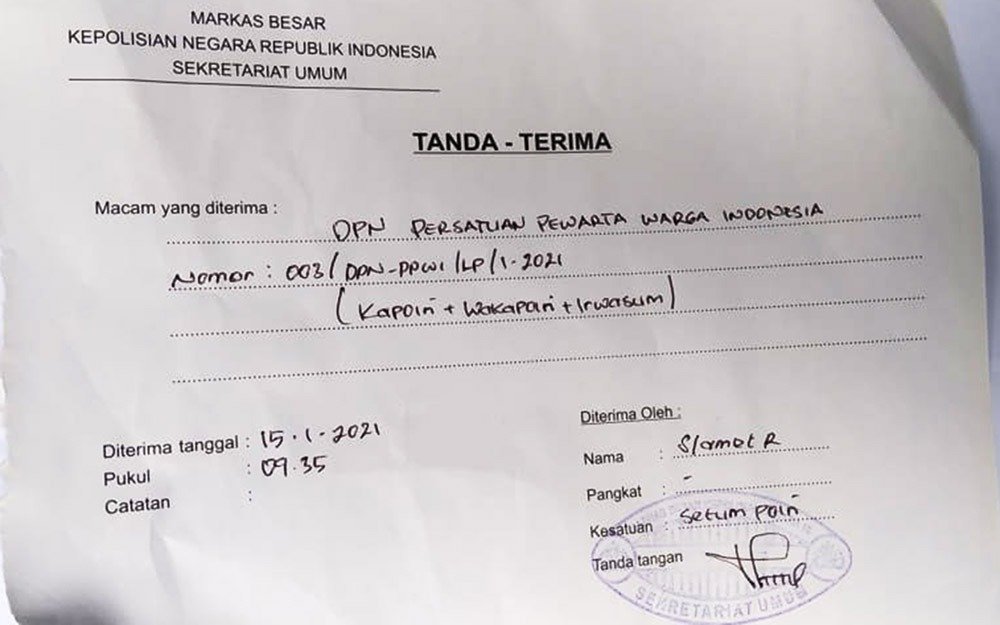 MARKAS BESAR
KEPOLISIAN NEGARA REPUBLIK INDONESIA
SEKRETARIAT UMUM
TANDA - TERIMA
Macam yang diterima :
DPN PERSATUAN PEWARTA WARGA INDONESIA
Nomor : 003/DPN-PPWI/LP/1-2021
(Kapolri + Wakapolri + Irwasum)
Diterima tanggal : 15.1.2021
Pukul : 09.35
Catatan :
Diterima Oleh :
Nama : Slamet R
Pangkat : -
Kesatuan : Setum Polri
Tanda tangan
SEKRETARIAT UMUM